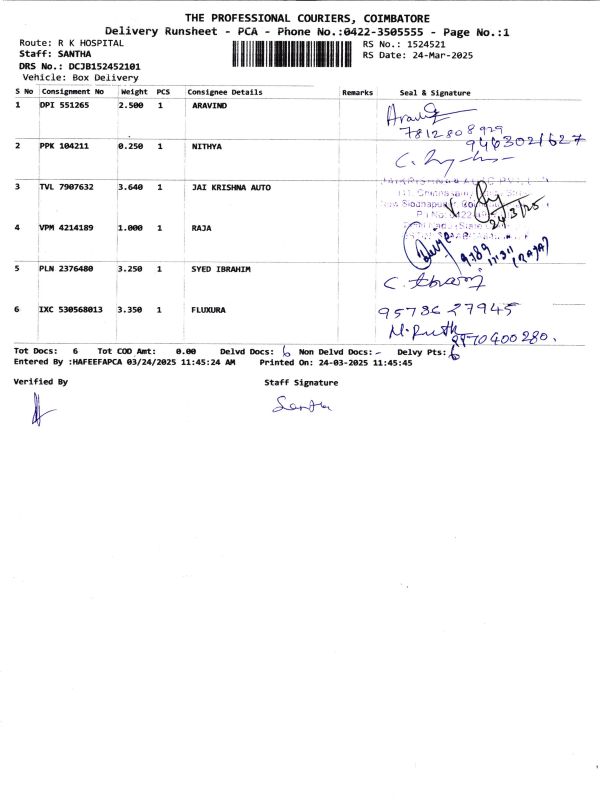 THE PROFESSIONAL COURIERS, COIMBATORE
Delivery Runsheet - PCA - Phone No.:0422-3505555 - Page No.:1
Route: R K HOSPITAL
RS No.: 1524521
Staff: SANTHA
RS Date: 24-Mar-2025
DRS No.: DCJB152452101
Vehicle: Box Delivery
S No Consignment No Weight PCS Consignee Details Remarks Seal & Signature
1 DPI 551265 2.500 1 ARAVIND
7812808929
2 PPK 104211 0.250 1 NITHYA
9463021627
3 TVL 7907632 3.640 1 JAI KRISHNA AUTO
24/3/25
4 VPM 4214189 1.000 1 RAJA
9789
(RAJA)
5 PLN 2376480 3.250 1 SYED IBRAHIM
6 IXC 530568013 3.350 1 FLUXURA
95786 27945
M. Ruth
9970400280.
Tot Docs: 6 Tot COD Amt: 0.00 Delvd Docs: 6 Non Delvd Docs: - Delvy Pts: 6
Entered By :HAFEEFAPCA 03/24/2025 11:45:24 AM Printed On: 24-03-2025 11:45:45
Verified By Staff Signature
Santha